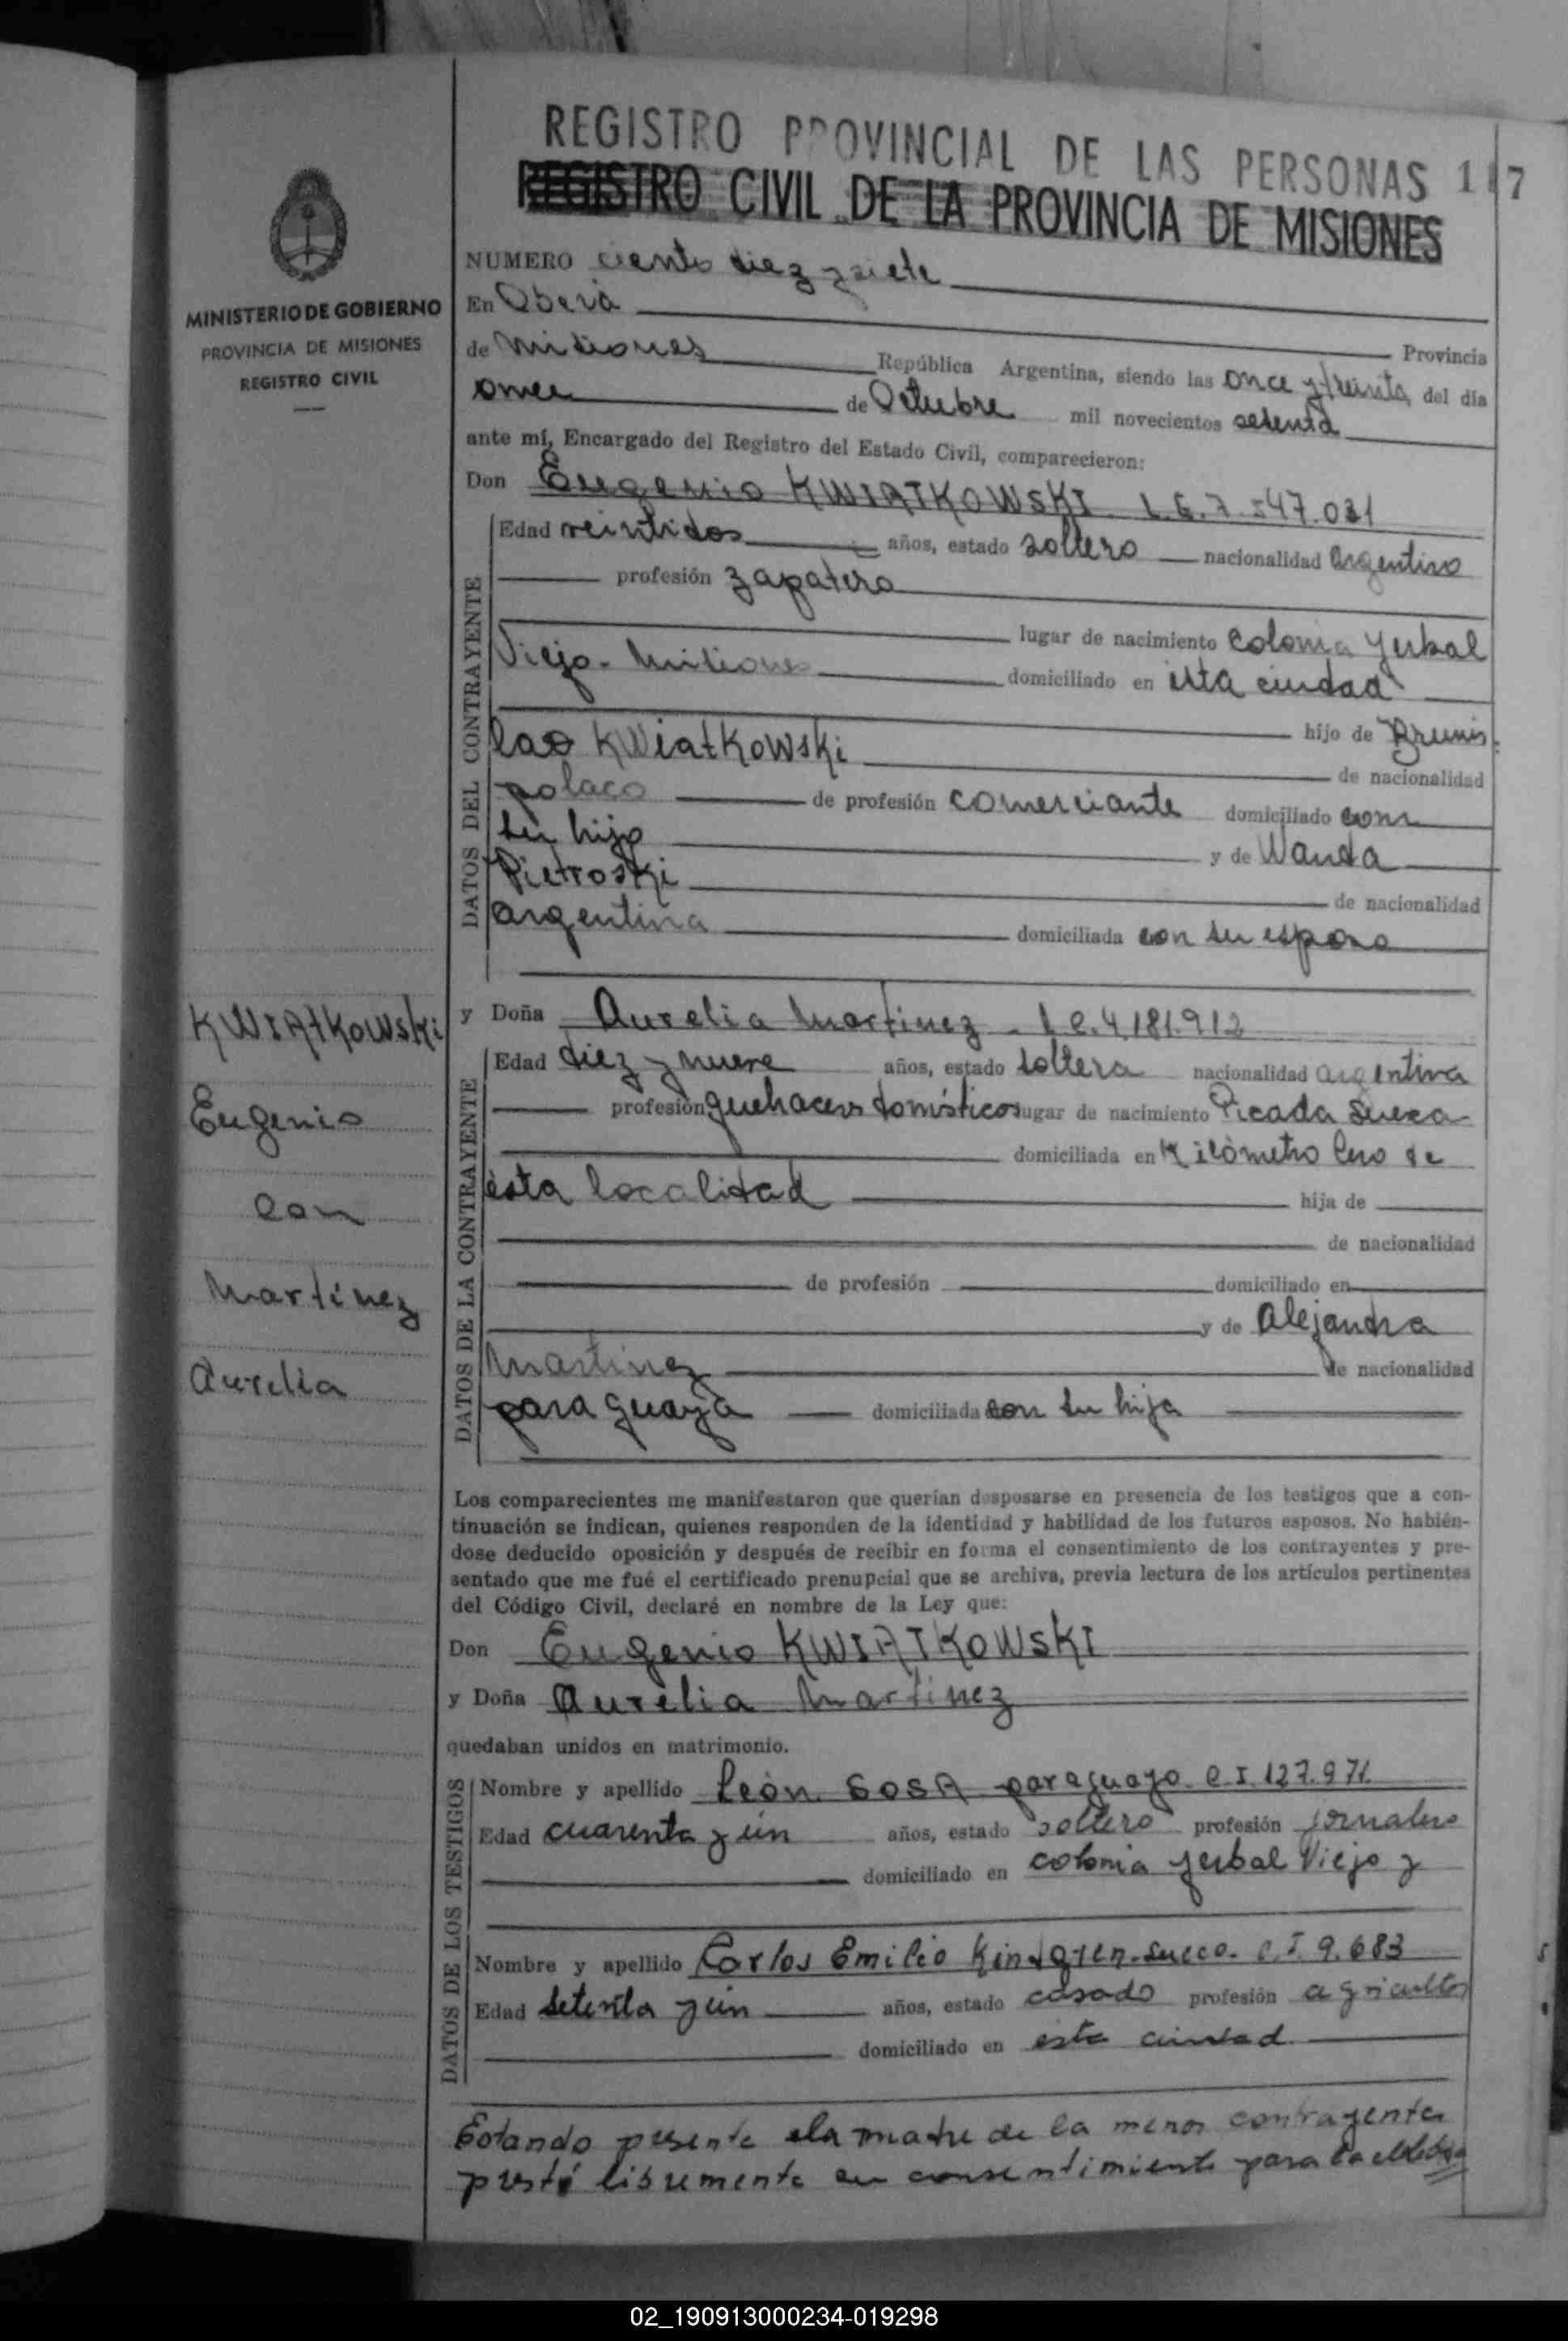 REGISTRO PROVINCIAL DE LAS PERSONAS 117
REGISTRO CIVIL DE LA PROVINCIA DE MISIONES
MINISTERIO DE GOBIERNO
PROVINCIA DE MISIONES
REGISTRO CIVIL
NUMERO ciento diez y siete
En Oberá Provincia
de Misiones República Argentina, siendo las once y treinta del día
once de Octubre mil novecientos setenta
ante mí, Encargado del Registro del Estado Civil, comparecieron:
Don Eugenio KWIATKOWSKI L.E. 7.547.031
DATOS DEL CONTRAYENTE
Edad veintidos años, estado soltero nacionalidad argentino
profesión zapatero
lugar de nacimiento Colonia Yerbal
Viejo - Misiones domiciliado en esta ciudad
hijo de Brunis-
lao Kwiatkowski de nacionalidad
polaco de profesión comerciante domiciliado con
su hijo y de Wanda
Pietroski de nacionalidad
argentina domiciliada con su esposo
KWIAtKowski
Eugenio
con
Martinez
Aurelia
y Doña Aurelia Martinez - L.C. 4.181.912
DATOS DE LA CONTRAYENTE
Edad diez y nueve años, estado soltera nacionalidad argentina
profesión quehaceres domésticos lugar de nacimiento Picada Sueca
domiciliada en Kilómetro Cero de
ésta localidad hija de
de nacionalidad
de profesión domiciliado en
y de Alejandra
Martinez de nacionalidad
paraguaya domiciliada con su hija
Los comparecientes me manifestaron que querían desposarse en presencia de los testigos que a con-
tinuación se indican, quienes responden de la identidad y habilidad de los futuros esposos. No habién-
dose deducido oposición y después de recibir en forma el consentimiento de los contrayentes y pre-
sentado que me fué el certificado prenupcial que se archiva, previa lectura de los artículos pertinentes
del Código Civil, declaré en nombre de la Ley que:
Don Eugenio KWIATKOWSKI
y Doña Aurelia Martinez
quedaban unidos en matrimonio.
DATOS DE LOS TESTIGOS
Nombre y apellido León SOSA paraguayo C.I. 127.971.
Edad cuarenta y un años, estado soltero profesión jornalero
domiciliado en colonia Yerbal Viejo y
Nombre y apellido Carlos Emilio Kindgren - sueco - C.I. 9.683
Edad setenta y un años, estado casado profesión agricultor
domiciliado en esta ciudad
Estando presente la madre de la menor contrayente
prestó libremente su consentimiento para
02_190913000234-019298